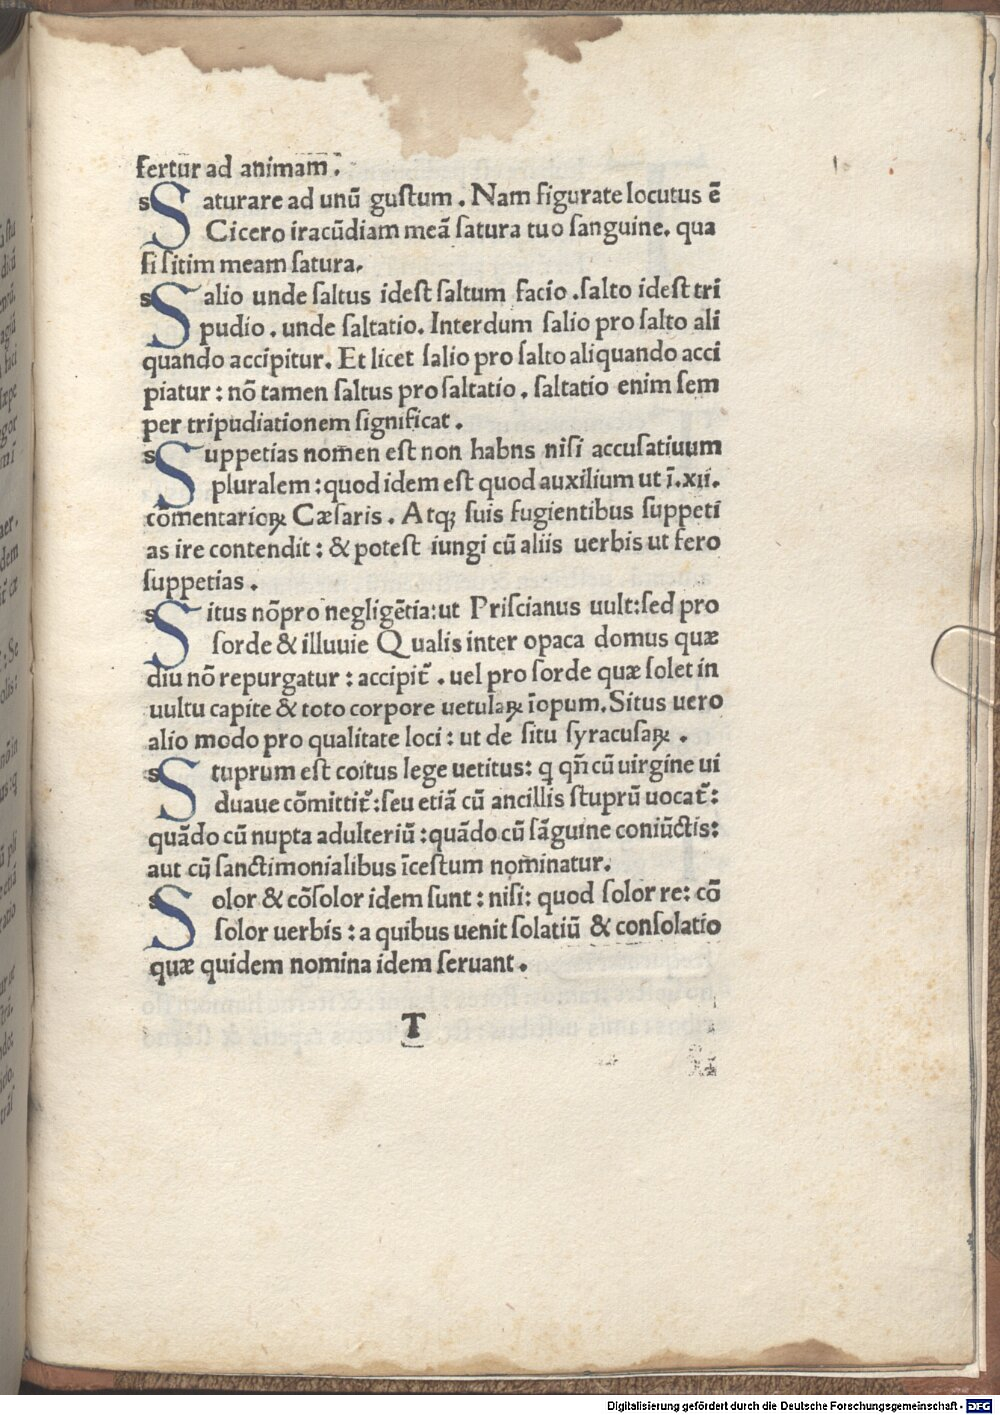 fertur ad animam .
Saturare ad unũ guſtum . Nam figurate locutus ẽ
Cicero iracũdiam meã ſatura tuo ſanguine. qua
ſi ſitim meam ſatura.
Salio unde ſaltus ideſt ſaltum facio .ſalto ideſt tri
pudio . unde ſaltatio. Interdum ſalio pro ſalto ali
quando accipitur. Et licet ſalio pro ſalto aliquando acci
piatur : nõ tamen ſaltus pro ſaltatio . ſaltatio enim ſem
per tripudiationem ſignificat .
Suppetias nomen eſt non habñs niſi accuſatiuum
pluralem : quod idem eſt quod auxilium ut ĩ.xii.
cõmentarioꝝ Cæſaris . Atqꝫ ſuis fugientibus ſuppeti
as ire contendit : & poteſt iungi cũ aliis uerbis ut fero
ſuppetias .
Situs nõ pro negligẽtia: ut Priſcianus uult: ſed pro
ſorde & illuuie Qualis inter opaca domus quæ
diu nõ repurgatur : accipit̃ . uel pro ſorde quæ ſolet in
uultu capite & toto corpore uetulaꝝ ĩopum. Situs uero
alio modo pro qualitate loci : ut de ſitu ſyracuſaꝝ .
Stuprum eſt coitus lege uetitus: q qñ cũ uirgine ui
duaue cõmittit̃: ſeu etiã cũ ancillis ſtuprũ uocat̃:
quãdo cũ nupta adulteriũ : quãdo cũ ſãguine coniũctis:
aut cũ ſanctimonialibus ĩceſtum nominatur.
Solor & cõſolor idem ſunt : niſi: quod ſolor re: cõ
ſolor uerbis : a quibus uenit ſolatiũ & conſolatio
quæ quidem nomina idem ſeruant .
T
Digitalisierung gefördert durch die Deutsche Forschungsgemeinschaft - DFG